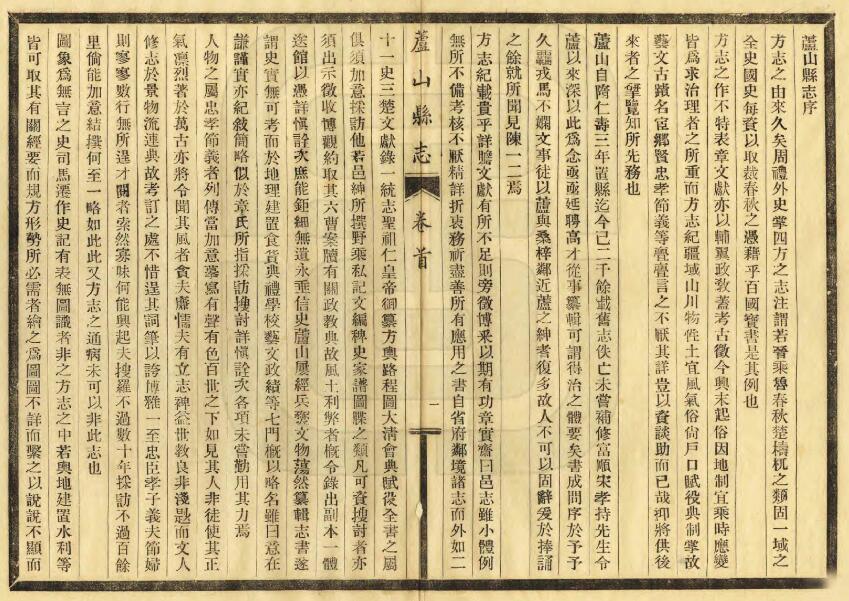 蘆山縣志序
方志之由來久矣周禮外史掌四方之志注謂若晉乘魯春秋楚檮杌之類固一域之
全史國史每資以取裁春秋之憑藉乎百國寶書是其例也
方志之作不特表章文獻亦以輔翼政敎蓋考古徵今興末起俗因地制宜乘時應變
皆爲求治理者之所重而方志紀疆域山川物性土宜風氣俗尙戶口賦役典制掌故
藝文古蹟名宦鄉賢忠孝節義等亹亹言之不厭其詳豈以資談助而已哉抑將供後
來者之肇覽知所先務也
蘆山自隋仁壽三年置縣迄今已二千餘載舊志佚亡未嘗補修富順宋孝持先生令
蘆以來深以此爲念亟亟延聘高才從事纂輯可謂得治之體要矣書成問序於予予
久羈戎馬不嫻文事徒以蘆與桑梓鄰近蘆之紳耆復多故人不可以固辭爰於捧誦
之餘就所聞見陳一二焉
方志紀載貴乎詳贍文獻有所不足則旁徵博釆以期有功章實齋曰邑志雖小體例
無所不備考核不厭精詳折衷務祈盡善所有應用之書自省府鄰境諸志而外如二
蘆山縣志
卷首
一
十一史三楚文獻錄一統志聖祖仁皇帝御纂方輿路程圖大淸會典賦役全書之屬
俱須加意採訪他若邑紳所撰野乘私記文編稗史家譜圖牒之類凡可資搜討者亦
須出示徵收博觀約取其六曹案牘有關政敎典故風土利弊者槪令錄出副本一體
送館以憑詳愼詮次庶能鉅細無遺永垂信史蘆山屢經兵燹文物蕩然纂輯志書遂
謂史實無可考而於地理建置食貨典禮學校藝文政績等七門槪以略名雖曰意在
謙謹實亦紀敘簡略似於章氏所指採訪搜討詳愼詮次各項未嘗勤用其力焉
人物之屬忠孝節義者列傳當加意摹寫有聲有色百世之下如見其人非徒使其正
氣凜烈著於萬古亦將令聞其風者貪夫廉懦夫有立志裨益世敎良非淺尟而文人
修志於景物流連典故考訂之處不惜逞其詞筆以誇博雅一至忠臣孝子義夫節婦
則寥寥數行無所逞才閱者索然寡味何能興起夫搜羅不過數十年採訪不過百餘
里倘能加意結撰何至一略如此此又方志之通病未可以非此志也
圖象爲無言之史司馬遷作史記有表無圖識者非之方志之中若輿地建置水利等
皆可取其有關經要而規方形勢所必需者繪之爲圖圖不詳而繫之以說說不顯而